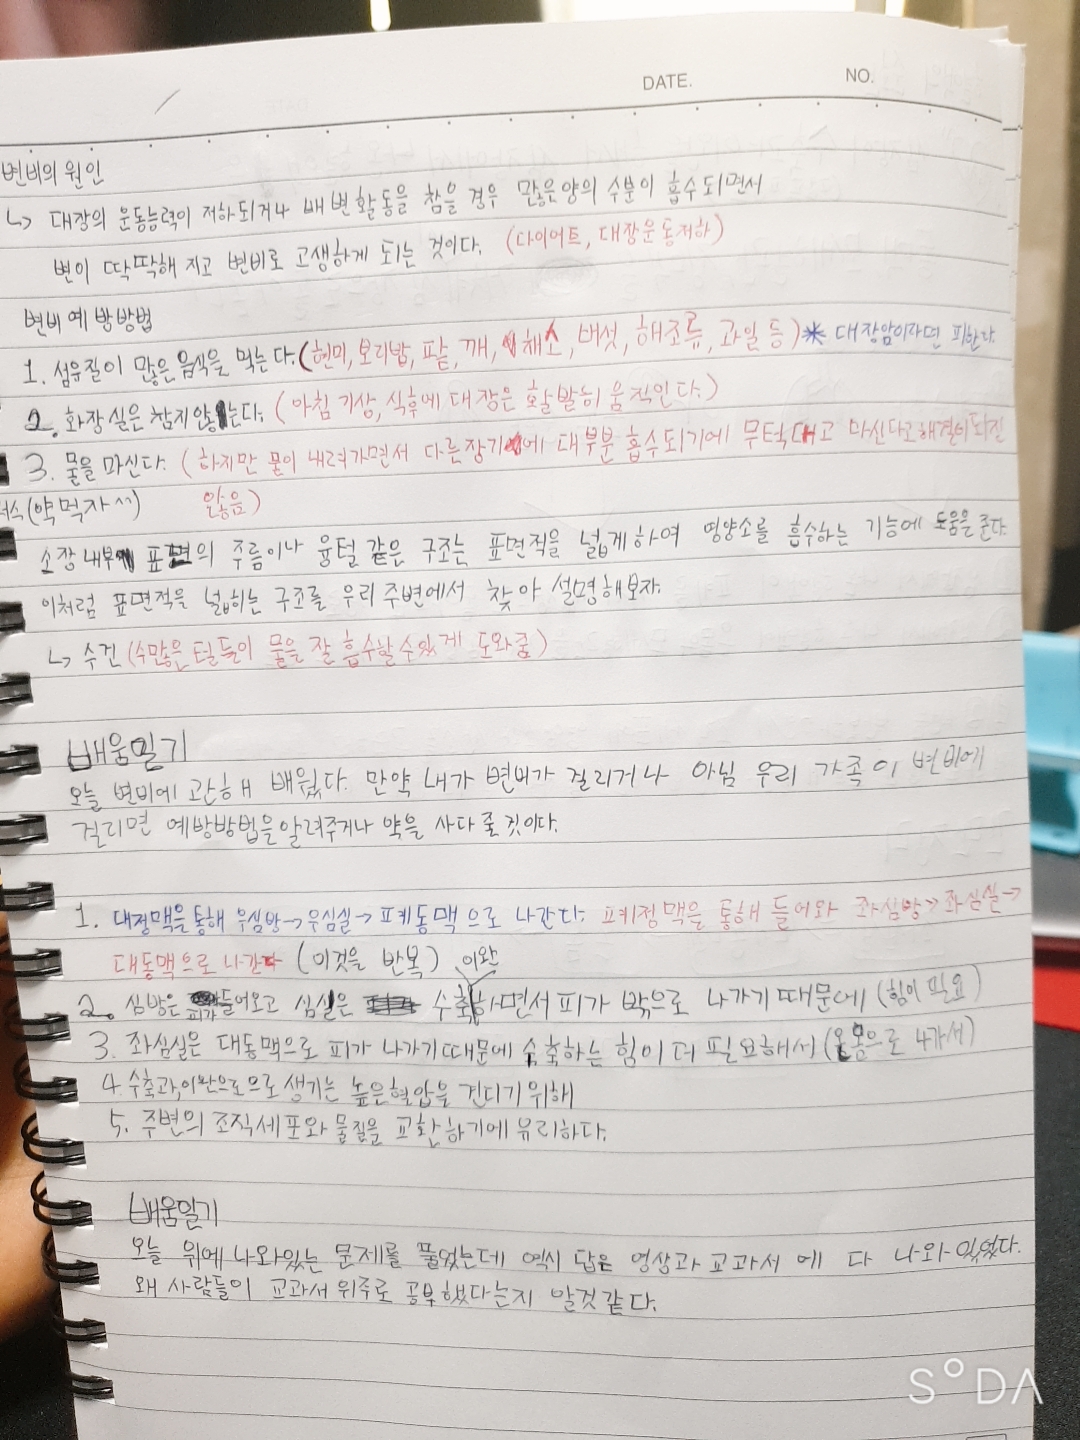 DATE.
NO.
변비의 원인
↳ 대장의 운동능력이 저하되거나 배변활동을 참을 경우 많은양의 수분이 흡수되면서
변이 딱딱해 지고 변비로 고생하게 되는 것이다. (다이어트, 대장운동저하)
변비 예방방법
1. 섬유질이 많은 음식을 먹는다. (현미, 보리밥, 팥, 깨, 채소, 버섯, 해조류, 과일 등) * 대장암이라면 피한다.
2. 화장실은 참지않는다. (아침 기상, 식후에 대장은 활발히 움직인다.)
3. 물을 마신다. (하지만 물이 내려가면서 다른장기에 대부분 흡수되기에 무턱대고 마신다고해결이되질
(약먹자^^) 않음)
소장 내부 표면의 주름이나 융털 같은 구조는 표면적을 넓게하여 영양소를 흡수하는 기능에 도움을 준다.
이처럼 표면적을 넓히는 구조를 우리 주변에서 찾아 설명해보자.
↳ 수건 (수많은 털들이 물을 잘 흡수할수있게 도와줌)
배움일기
오늘 변비에 관해 배웠다. 만약 내가 변비가 걸리거나 아님 우리 가족이 변비에
걸리면 예방방법을알려주거나 약을 사다 줄 것이다.
1. 대정맥을 통해 우심방→우심실→폐동맥으로 나간다. 폐정맥을 통해 들어와 좌심방→좌심실→
대동맥으로 나간다 (이것을 반복)
2. 심방은 피가 들어오고 심실은 수축 이완 하면서 피가 밖으로 나가기 때문에 (힘이 필요)
3. 좌심실은 대동맥으로 피가 나가기때문에 수축하는 힘이 더 필요해서 (온몸으로 나가서)
4. 수축과,이완으로으로 생기는 높은혈압을 견디기 위해
5. 주변의 조직세포와 물질을 교환하기에 유리하다.
배움일기
오늘 위에 나와있는 문제를 풀었는데 역시 답은 영상과 교과서에 다 나와있었다.
왜 사람들이 교과서 위주로 공부했다는지 알것같다.
SODA